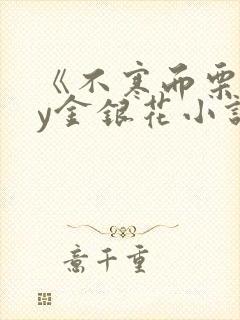 《不寒而栗
y金银花小说
意千重